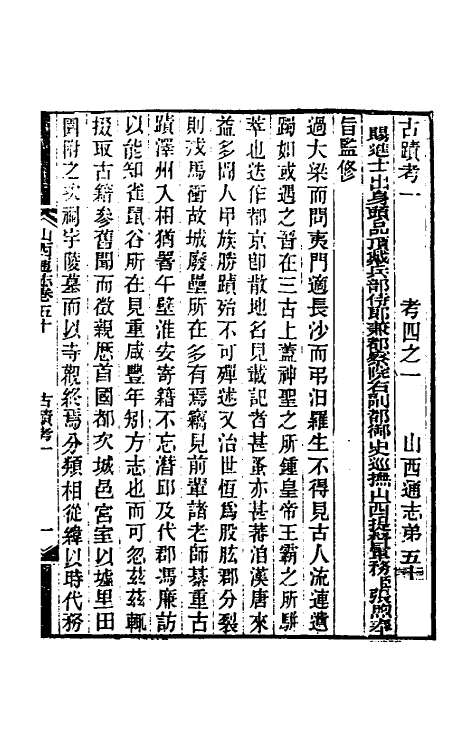 古蹟考一 考四之一 山西通志第五十
賜進士出身頭品頂戴兵部侍郎兼都察院右副都御史巡撫山西提督軍務張煦奉
旨監修
過大梁而問夷門適長沙而弔汨羅生不得見古人流連遺
躅如或遇之晉在三古上蓋神聖之所鍾皇帝王霸之所駢
萃也迭作都京卽散地名見載記者甚蚤亦甚蕃洎漢唐來
益多聞人甲族勝蹟殆不可殫述又治世恆爲股肱郡分裂
則戎馬衝故城廢壘所在多有焉竊見前輩諸老師綦重古
蹟澤州入相猶署午壁淮安寄籍不忘潛邱及代郡馮廉訪
以能知雀鼠谷所在見重咸豐年矧方志也而可忽茲茲輒
掇取古籍參舊聞而徵親歷首國都次城邑宮室以墟里田
園附之次祠宇陵墓而以寺觀終焉分類相從緯以時代務
山西通志卷五十 古蹟考一 一